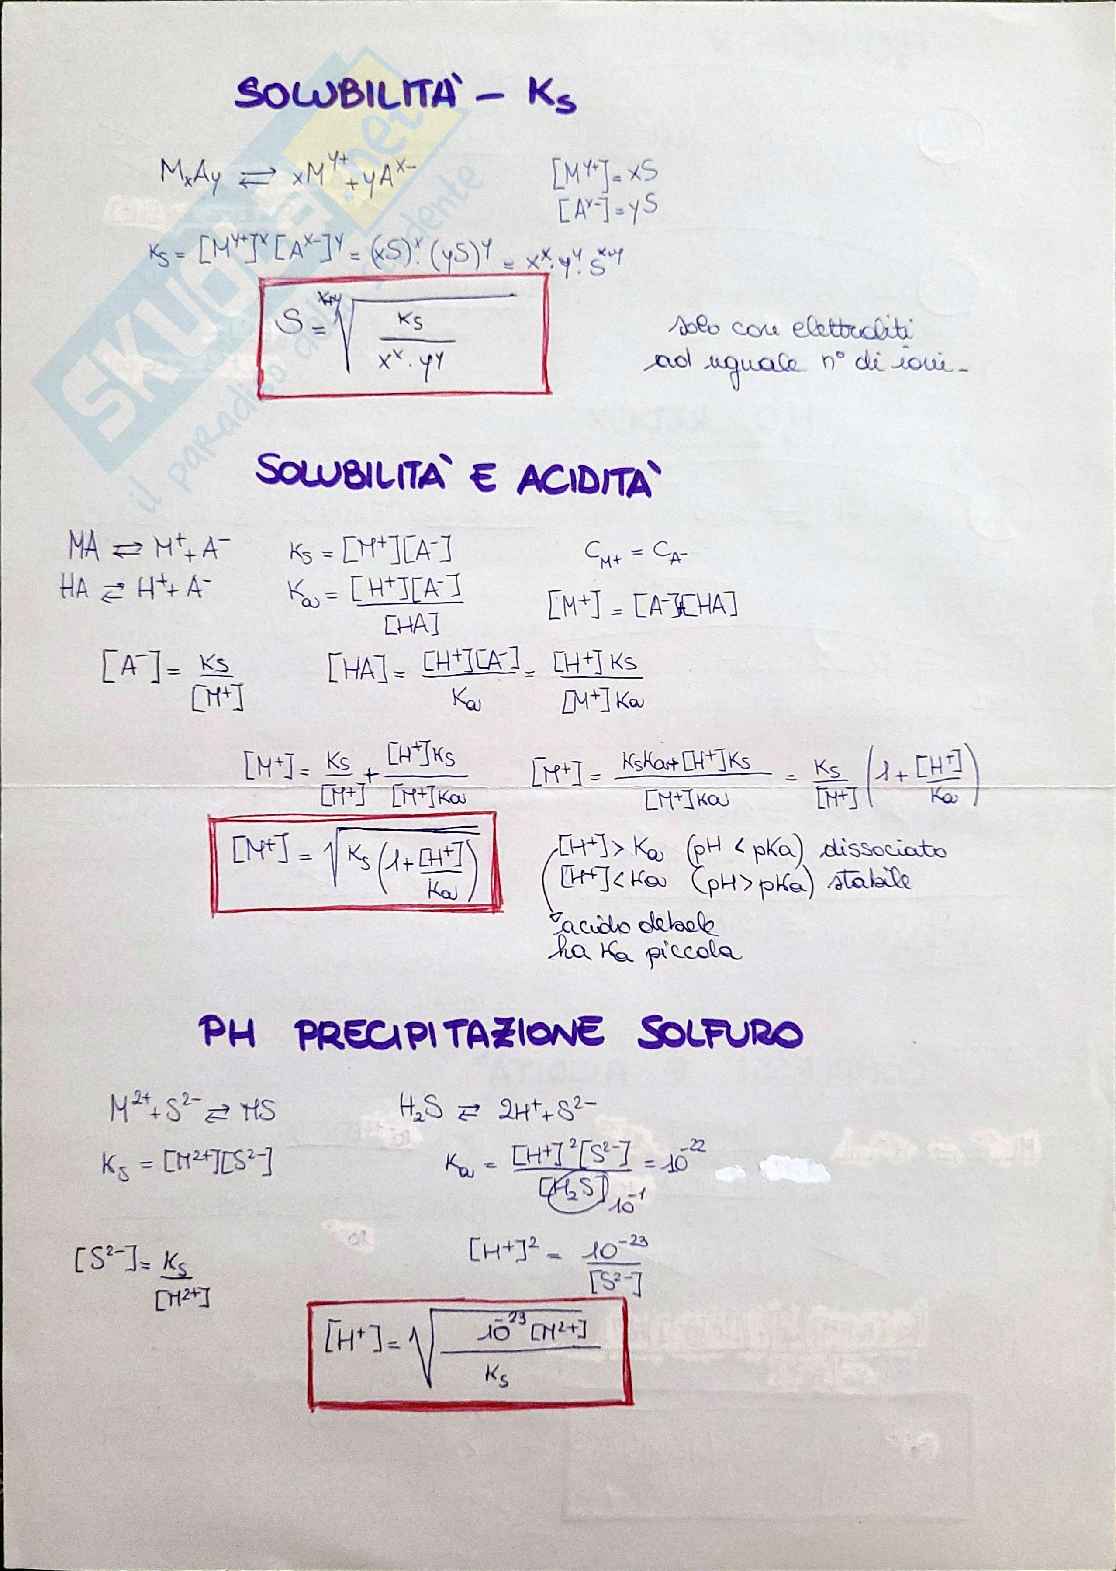 SOLUBILITÀ - Ks
MxAy ⇌ xM^y+ + yA^x-    [M^y+] = xS
[A^x-] = yS
Ks = [M^y+]^x [A^x-]^y = (xS)^x · (yS)^y = x^x · y^y · S^x+y
S = ^x+y√(Ks / x^x · y^y)
solo con elettroliti
ad uguale n° di ioni -
SOLUBILITÀ E ACIDITÀ
MA ⇌ M⁺ + A⁻    Ks = [M⁺][A⁻]    C_M+ = C_A-
HA ⇌ H⁺ + A⁻    Ka = [H⁺][A⁻] / [HA]    [M⁺] = [A⁻]+[HA]
[A⁻] = Ks / [M⁺]    [HA] = [H⁺][A⁻] / Ka = [H⁺] Ks / [M⁺] Ka
[M⁺] = Ks / [M⁺] + [H⁺]Ks / [M⁺]Ka    [M⁺] = KsKa+[H⁺]Ks / [M⁺]Ka = Ks / [M⁺] (1 + [H⁺] / Ka)
[M⁺] = √(Ks (1 + [H⁺] / Ka))
[H⁺] > Ka (pH < pKa) dissociato
[H⁺] < Ka (pH > pKa) stabile
acido debole
ha Ka piccola
PH PRECIPITAZIONE SOLFURO
M²⁺ + S²⁻ ⇌ MS    H₂S ⇌ 2H⁺ + S²⁻
Ks = [M²⁺][S²⁻]    Ka = [H⁺]²[S²⁻] / [H₂S] = 10⁻²²
10⁻¹
[S²⁻] = Ks / [M²⁺]    [H⁺]² = 10⁻²³ / [S²⁻]
[H⁺] = √(10⁻²³ [M²⁺] / Ks)
SKUOLA.net
il paradiso dello studente